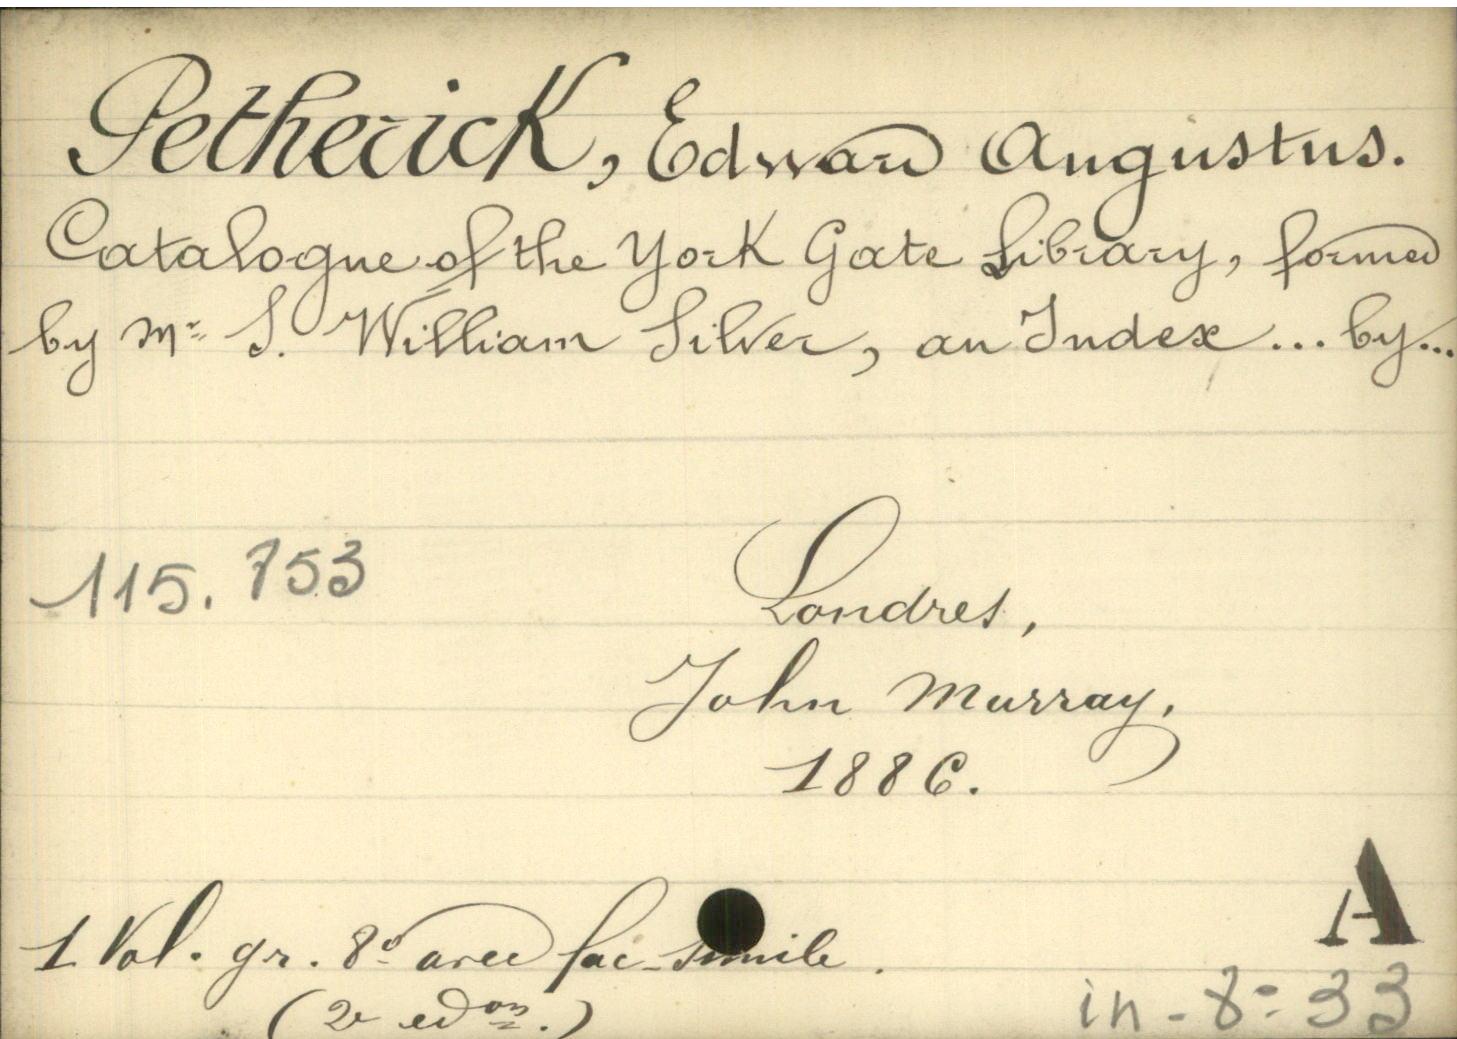 Petherick, Edward Augustus.
Catalogue of the York Gate Library, formed
by Mr. S. William Silver, an Index... by...
115.753
Londres,
John Murray,
1886.
1 Vol. gr. 8º avec fac-simile.
A
(2e edon.)
in-8º 33